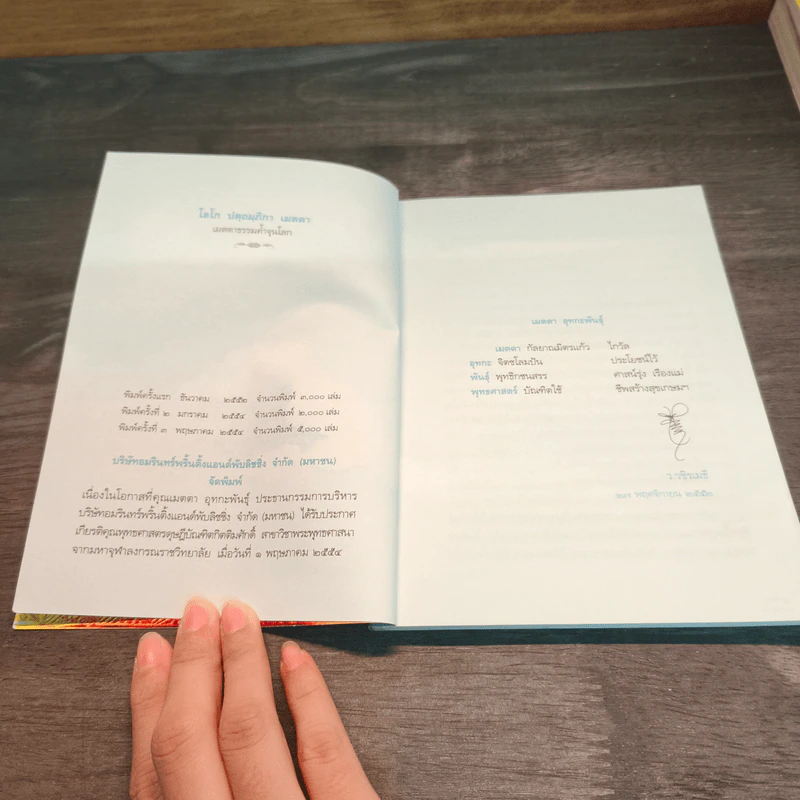 โลโก ปตฺถมฺภิกา เมตตา
เมตตาธรรมค้ำจุนโลก
พิมพ์ครั้งแรก ธันวาคม ๒๕๕๒ จำนวนพิมพ์ ๓,๐๐๐ เล่ม
พิมพ์ครั้งที่ ๒ มกราคม ๒๕๕๔ จำนวนพิมพ์ ๒,๐๐๐ เล่ม
พิมพ์ครั้งที่ ๓ พฤษภาคม ๒๕๕๔ จำนวนพิมพ์ ๕,๐๐๐ เล่ม
บริษัทอมรินทร์พริ้นติ้งแอนด์พับลิชชิ่ง จำกัด (มหาชน)
จัดพิมพ์
เนื่องในโอกาสที่คุณเมตตา อุทกะพันธุ์ ประธานกรรมการบริหาร
บริษัทอมรินทร์พริ้นติ้งแอนด์พับลิชชิ่ง จำกัด (มหาชน) ได้รับประกาศ
เกียรติคุณพุทธศาสตรดุษฎีบัณฑิตกิตติมศักดิ์ สาขาวิชาพระพุทธศาสนา
จากมหาจุฬาลงกรณราชวิทยาลัย เมื่อวันที่ ๑ พฤษภาคม ๒๕๕๔
เมตตา อุทกะพันธุ์
เมตตา กัลยาณมิตรแก้ว ไกวัล
อุทกะ จิตชโลมปัน ประโยชน์ไว้
พันธุ์ พุทธิกชนสรร ศาสน์รุ่ง เรืองแม่
พุทธศาสตร์ บัณฑิตใช้ ชีพสร้างสุขเกษมฯ
ว.วชิรเมธี
พฤศจิกายน ๒๕๕๒